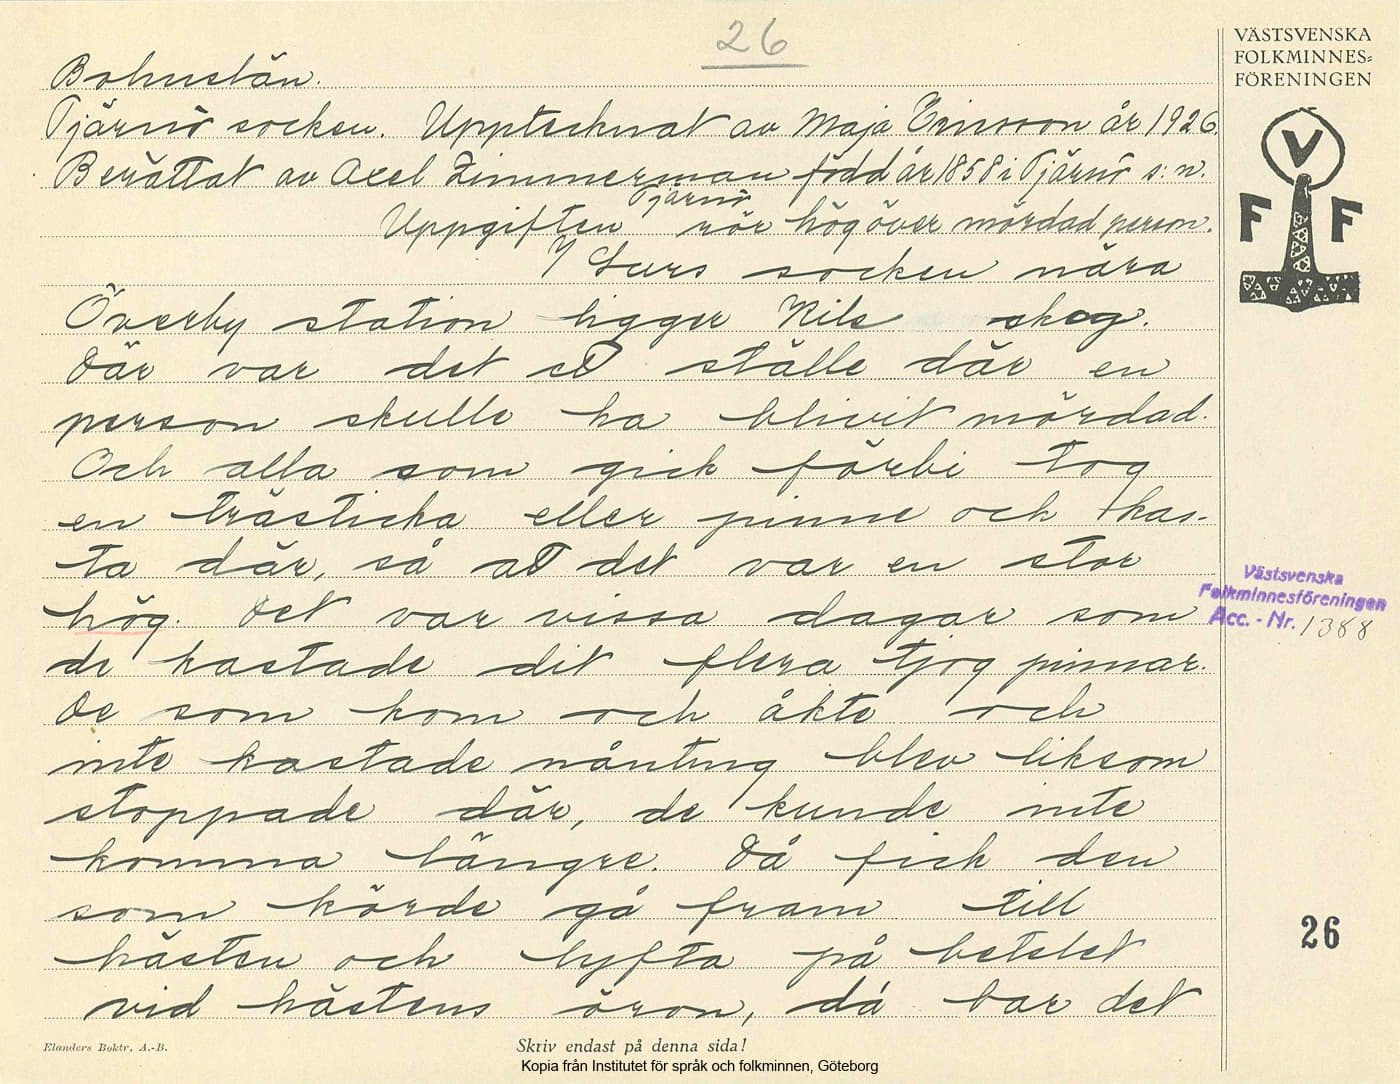 26
VÄSTSVENSKA
FOLKMINNES-
FÖRENINGEN
V
F F
Bohuslän.
Tjärnö socken. Upptecknat av Maja Ericsson år 1926.
Berättat av Axel Zimmerman född år 1858 i Tjärnö s:n.
Tjärnö
Uppgiften rör hög över mördad person.
I Lurs socken nära
Överby station ligger Nils skog.
Där var det ett ställe där en
person skulle ha blivit mördad.
Och alla som gick förbi tog
en trästicka eller pinne och kas-
ta där, så att det var en stor
hög. Det var vissa dagar som
de kastade dit flera tjog pinnar.
De som kom och åkte och
inte kastade nånting blev liksom
stoppade där, de kunde inte
komma längre. Då fick den
som körde gå fram till
hästen och lyfta på betslet
vid hästens öron, då bar det
Västsvenska
Folkminnesföreningen
Acc. - Nr. 1388
26
Elanders Boktr. A.-B.
Skriv endast på denna sida!
Kopia från Institutet för språk och folkminnen, Göteborg